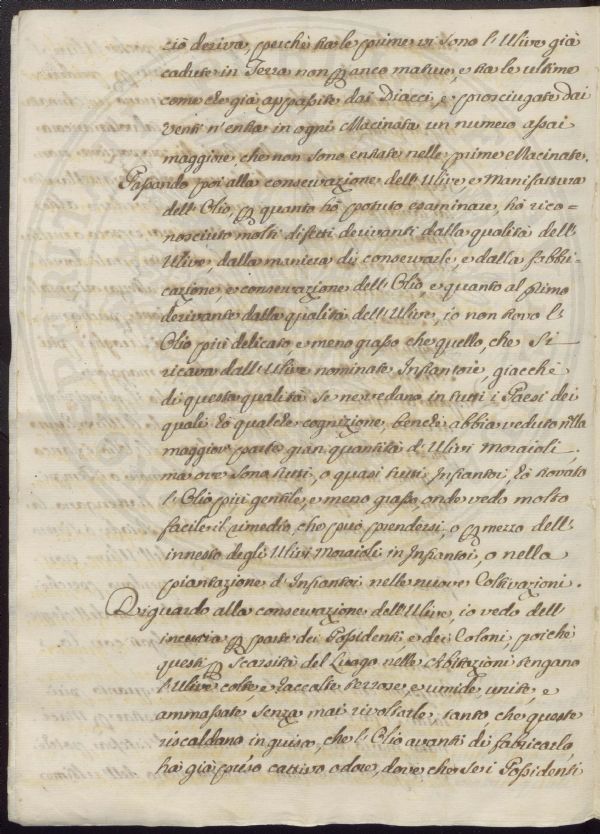 ciò deriva, perchè tra le prime vi sono l'Ulive già
cadute in Terra non per anco mature, e tra le ultime
come che già appassite dai Diacci, e prosciugate dai
Venti n'entra in ogni Macinata un numero assai
maggiore, che non sono entrate nelle prime Macinate.
Passando poi alla conservazione dell'Ulive e Manifattura
dell'Olio, per quanto hò potuto esaminare, hò rico=
nosciuto molti difetti derivanti dalla qualità dell'
Ulive, dalla maniera di conservarle, e dalla fabbri-
cazione, e conservazione dell'Olio, e quanto al primo
derivante dalla qualità dell'Ulive, io non trovo l'
Olio più delicato, e meno grasso che quello, che si
ricava dall'Ulive nominate Infrantoie, giacchè
di questa qualità se ne vedano in tutti i Paesi dei
quali hò qualche cognizione, benchè abbia veduto nella
maggior parte gran quantità d'Ulivi Moraioli.
ma ove sono tutti, o quasi tutti Infrantoi, hò trovato
l'Olio più gentile, e meno grasso, onde vedo molto
facile il rimedio, che può prendersi, o per mezzo dell'
innesto degli Ulivi Moraioli in Infrantoi, o nella
piantazione d'Infrantoi nelle nuove Coltivazioni.
Riguardo alla conservazione dell'Ulive, io vedo dell'
incuria per parte dei Possidenti, e dei Coloni, poichè
questi per scarsità del Luogo nelle Abitazioni tengano
l'Ulive colte, e raccolte terrose, e umide, unite, e
ammassate senza mai rivoltarle, tanto che queste
riscaldano in guisa, che l'Olio avanti di fabricarlo,
hà già preso cattivo odore, dove che se i Possidenti